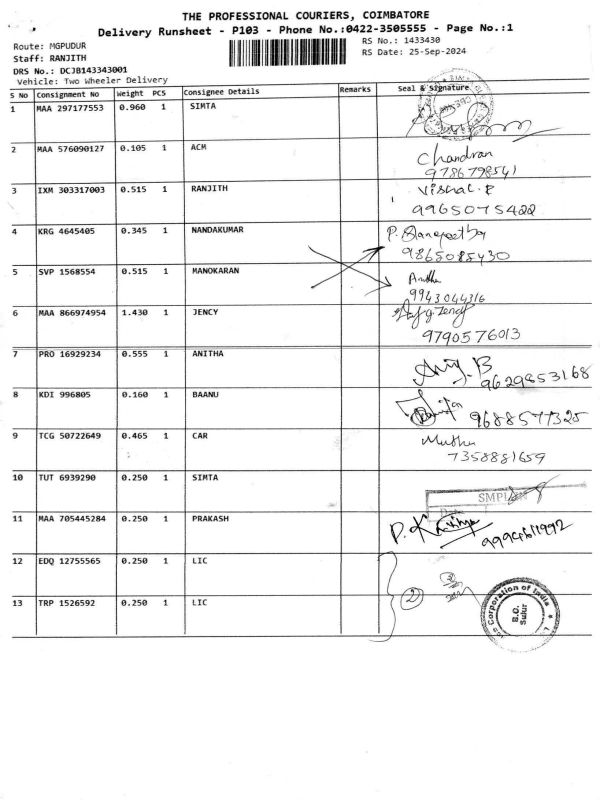 THE PROFESSIONAL COURIERS, COIMBATORE
Delivery Runsheet - P103 - Phone No.:0422-3505555 - Page No.:1
Route: MGPUDUR
RS No.: 1433430
Staff: RANJITH
RS Date: 25-Sep-2024
DRS No.: DCJB143343001
Vehicle: Two Wheeler Delivery
S No Consignment No Weight PCS Consignee Details Remarks Seal & Signature
1 MAA 297177553 0.960 1 SIMTA
2 MAA 576090127 0.105 1 ACM Chandran
9786798541
3 IXM 303317003 0.515 1 RANJITH Vishal. P
9965075422
4 KRG 4645405 0.345 1 NANDAKUMAR P.
9865085430
5 SVP 1568554 0.515 1 MANOKARAN
9943044316
6 MAA 866974954 1.430 1 JENCY g. Jency
9790576013
7 PRO 16929234 0.555 1 ANITHA B
9629853168
8 KDI 996805 0.160 1 BAANU
9688577325
9 TCG 50722649 0.465 1 CAR Muthu
7358881659
10 TUT 6939290 0.250 1 SIMTA
11 MAA 705445284 0.250 1 PRAKASH P.
9994611992
12 EDQ 12755565 0.250 1 LIC
2
13 TRP 1526592 0.250 1 LIC
Corporation of India
B.O.
Sulur